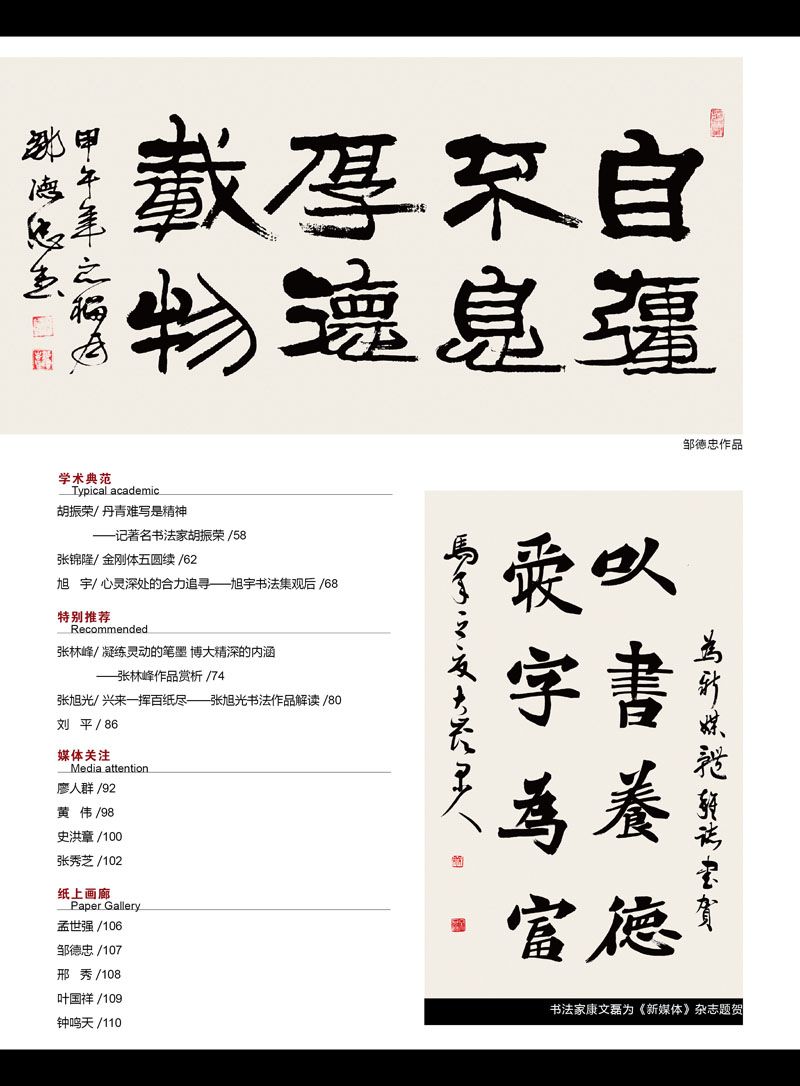 自彊
不息
厚德
載物
甲午年之
鄒德忠書
邹德忠作品
学术典范
Typical academic
胡振荣/ 丹青难写是精神
——记著名书法家胡振荣 /58
张锦隆/ 金刚体五圆续 /62
旭　宇/ 心灵深处的合力追寻——旭宇书法集观后 /68
特别推荐
Recommended
张林峰/ 凝练灵动的笔墨 博大精深的内涵
——张林峰作品赏析 /74
张旭光/ 兴来一挥百纸尽——张旭光书法作品解读 /80
刘　平 / 86
媒体关注
Media attention
廖人群 /92
黄　伟 /98
史洪章 /100
张秀芝 /102
纸上画廊
Paper Gallery
孟世强 /106
邹德忠 /107
邢　秀 /108
叶国祥 /109
钟鸣天 /110
為新媒體雜誌書賀
以書養德
愛字為富
馬年之夏大
书法家康文磊为《新媒体》杂志题贺